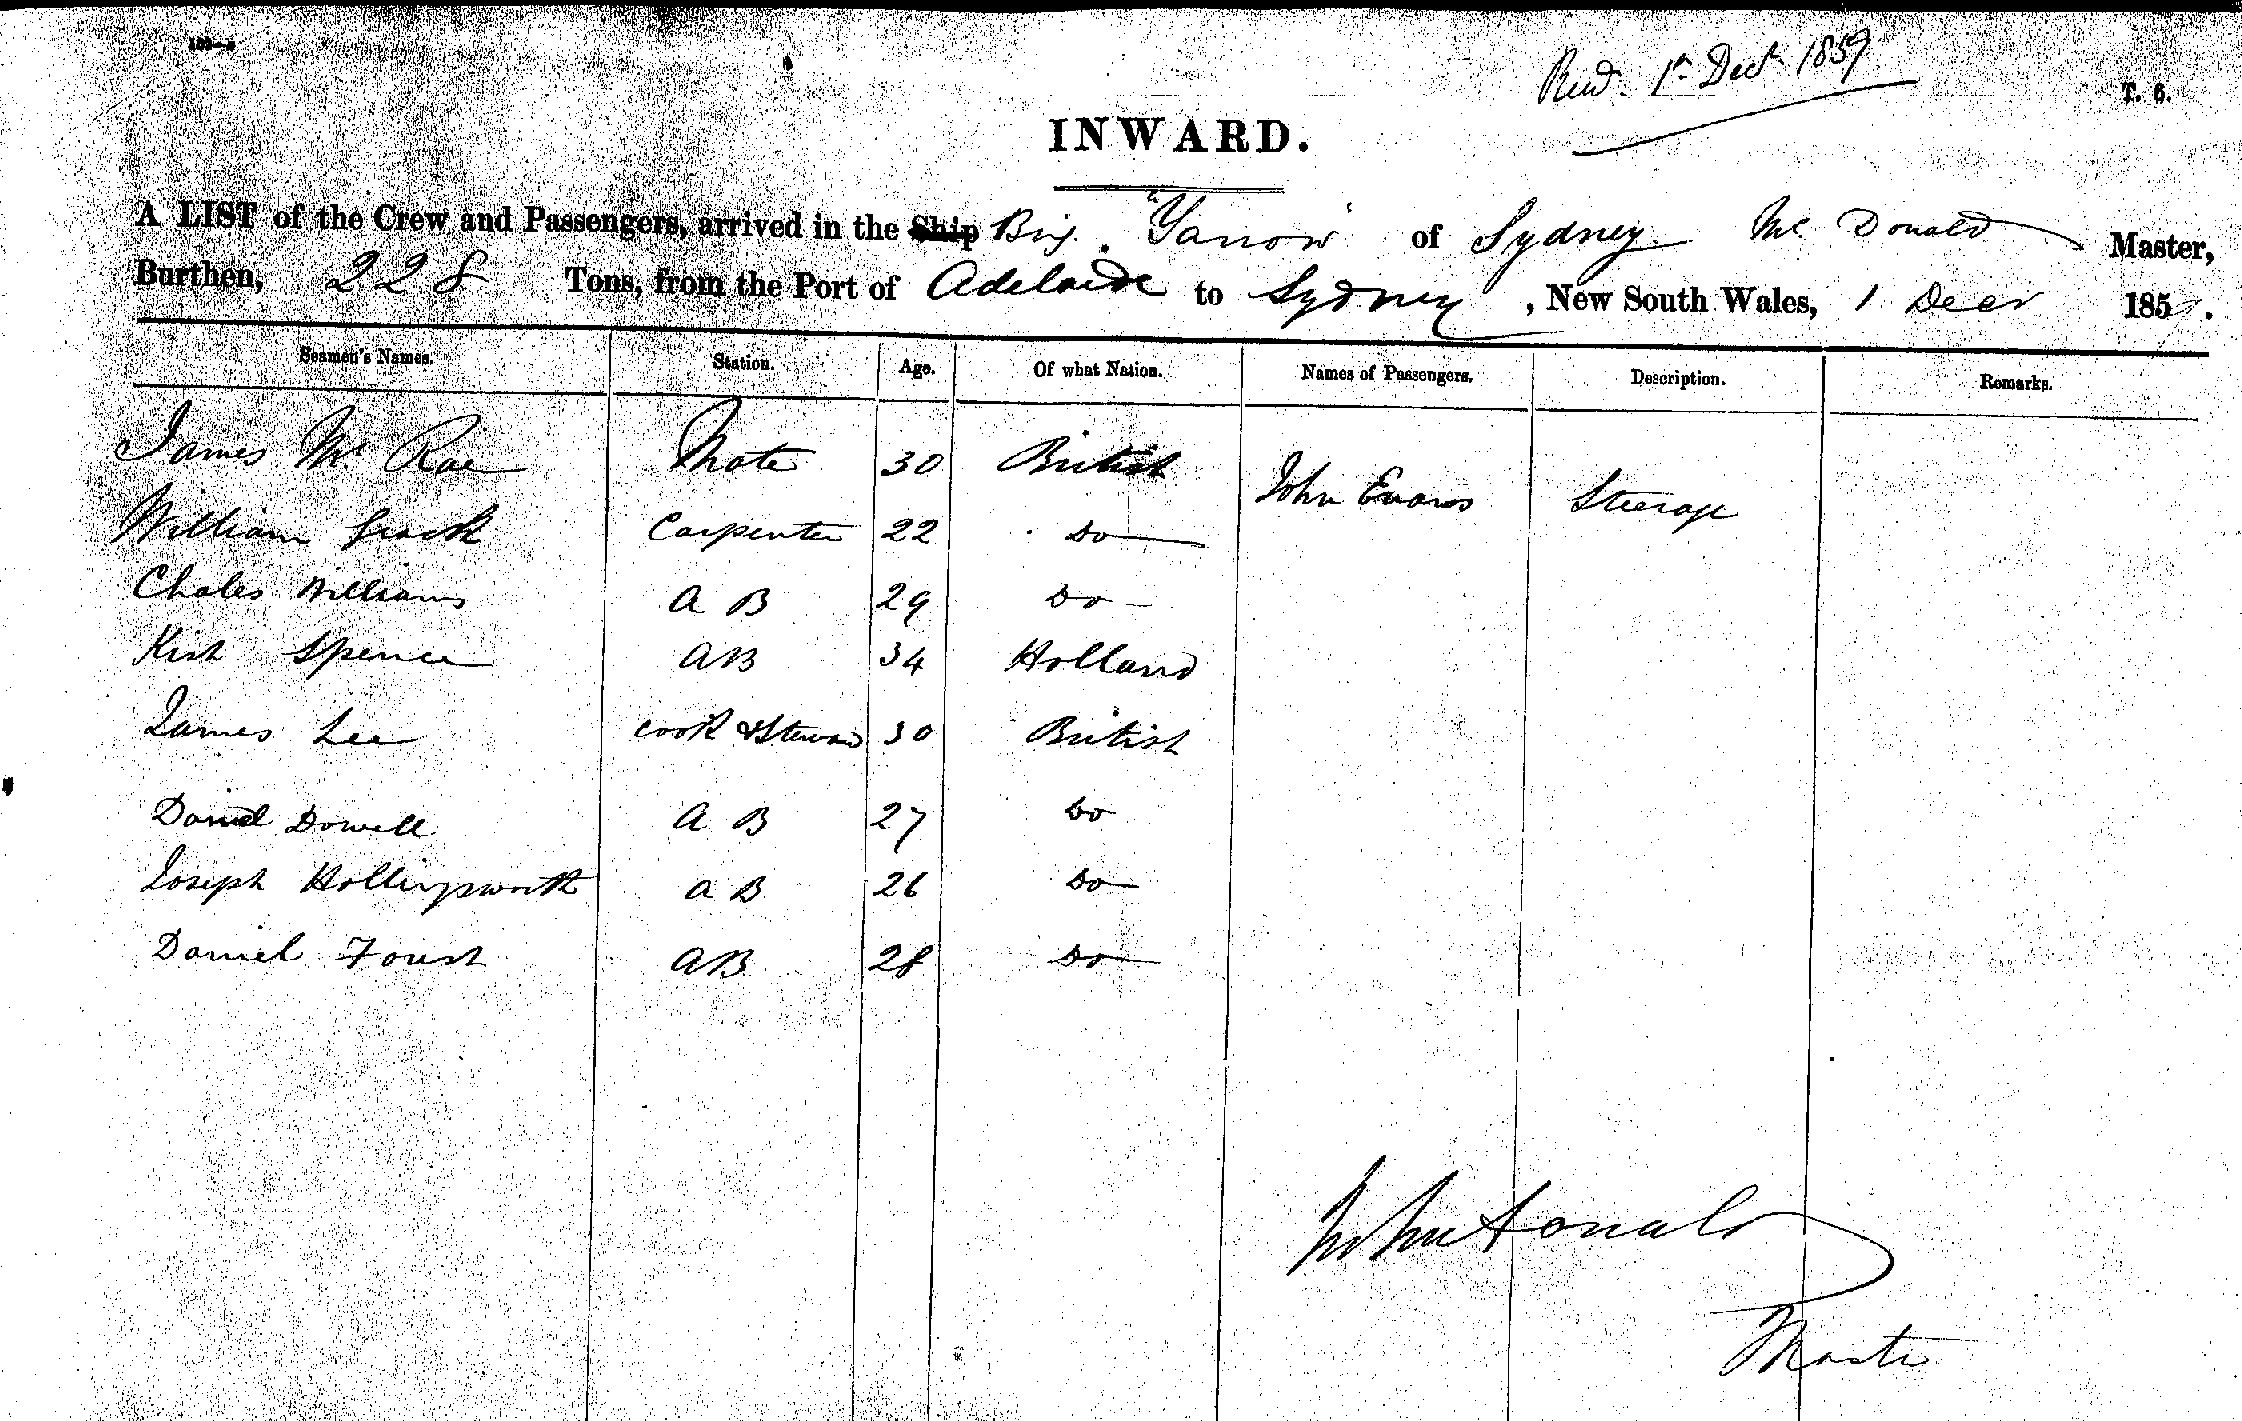 Recd. 1st Decr 1859
T. 6.
INWARD.
A LIST of the Crew and Passengers, arrived in the Ship Brig "Yarrow" of Sydney Mc Donald Master,
Burthen, 228 Tons, from the Port of Adelaide to Sydney, New South Wales, 1 Decr 185
Seamen's Names. Station. Age. Of what Nation. Names of Passengers. Description. Remarks.
James Mc Rae Mate 30 British John Evans Steerage
William Carpenter 22 Do
Chales Williams A B 29 Do
Spence AB 34 Holland
James Lee Cook & Steward 30 British
Daniel Dowell A B 27 Do
Joseph Hollingsworth A B 26 Do
Daniel AB 28 Do
Donald
Master